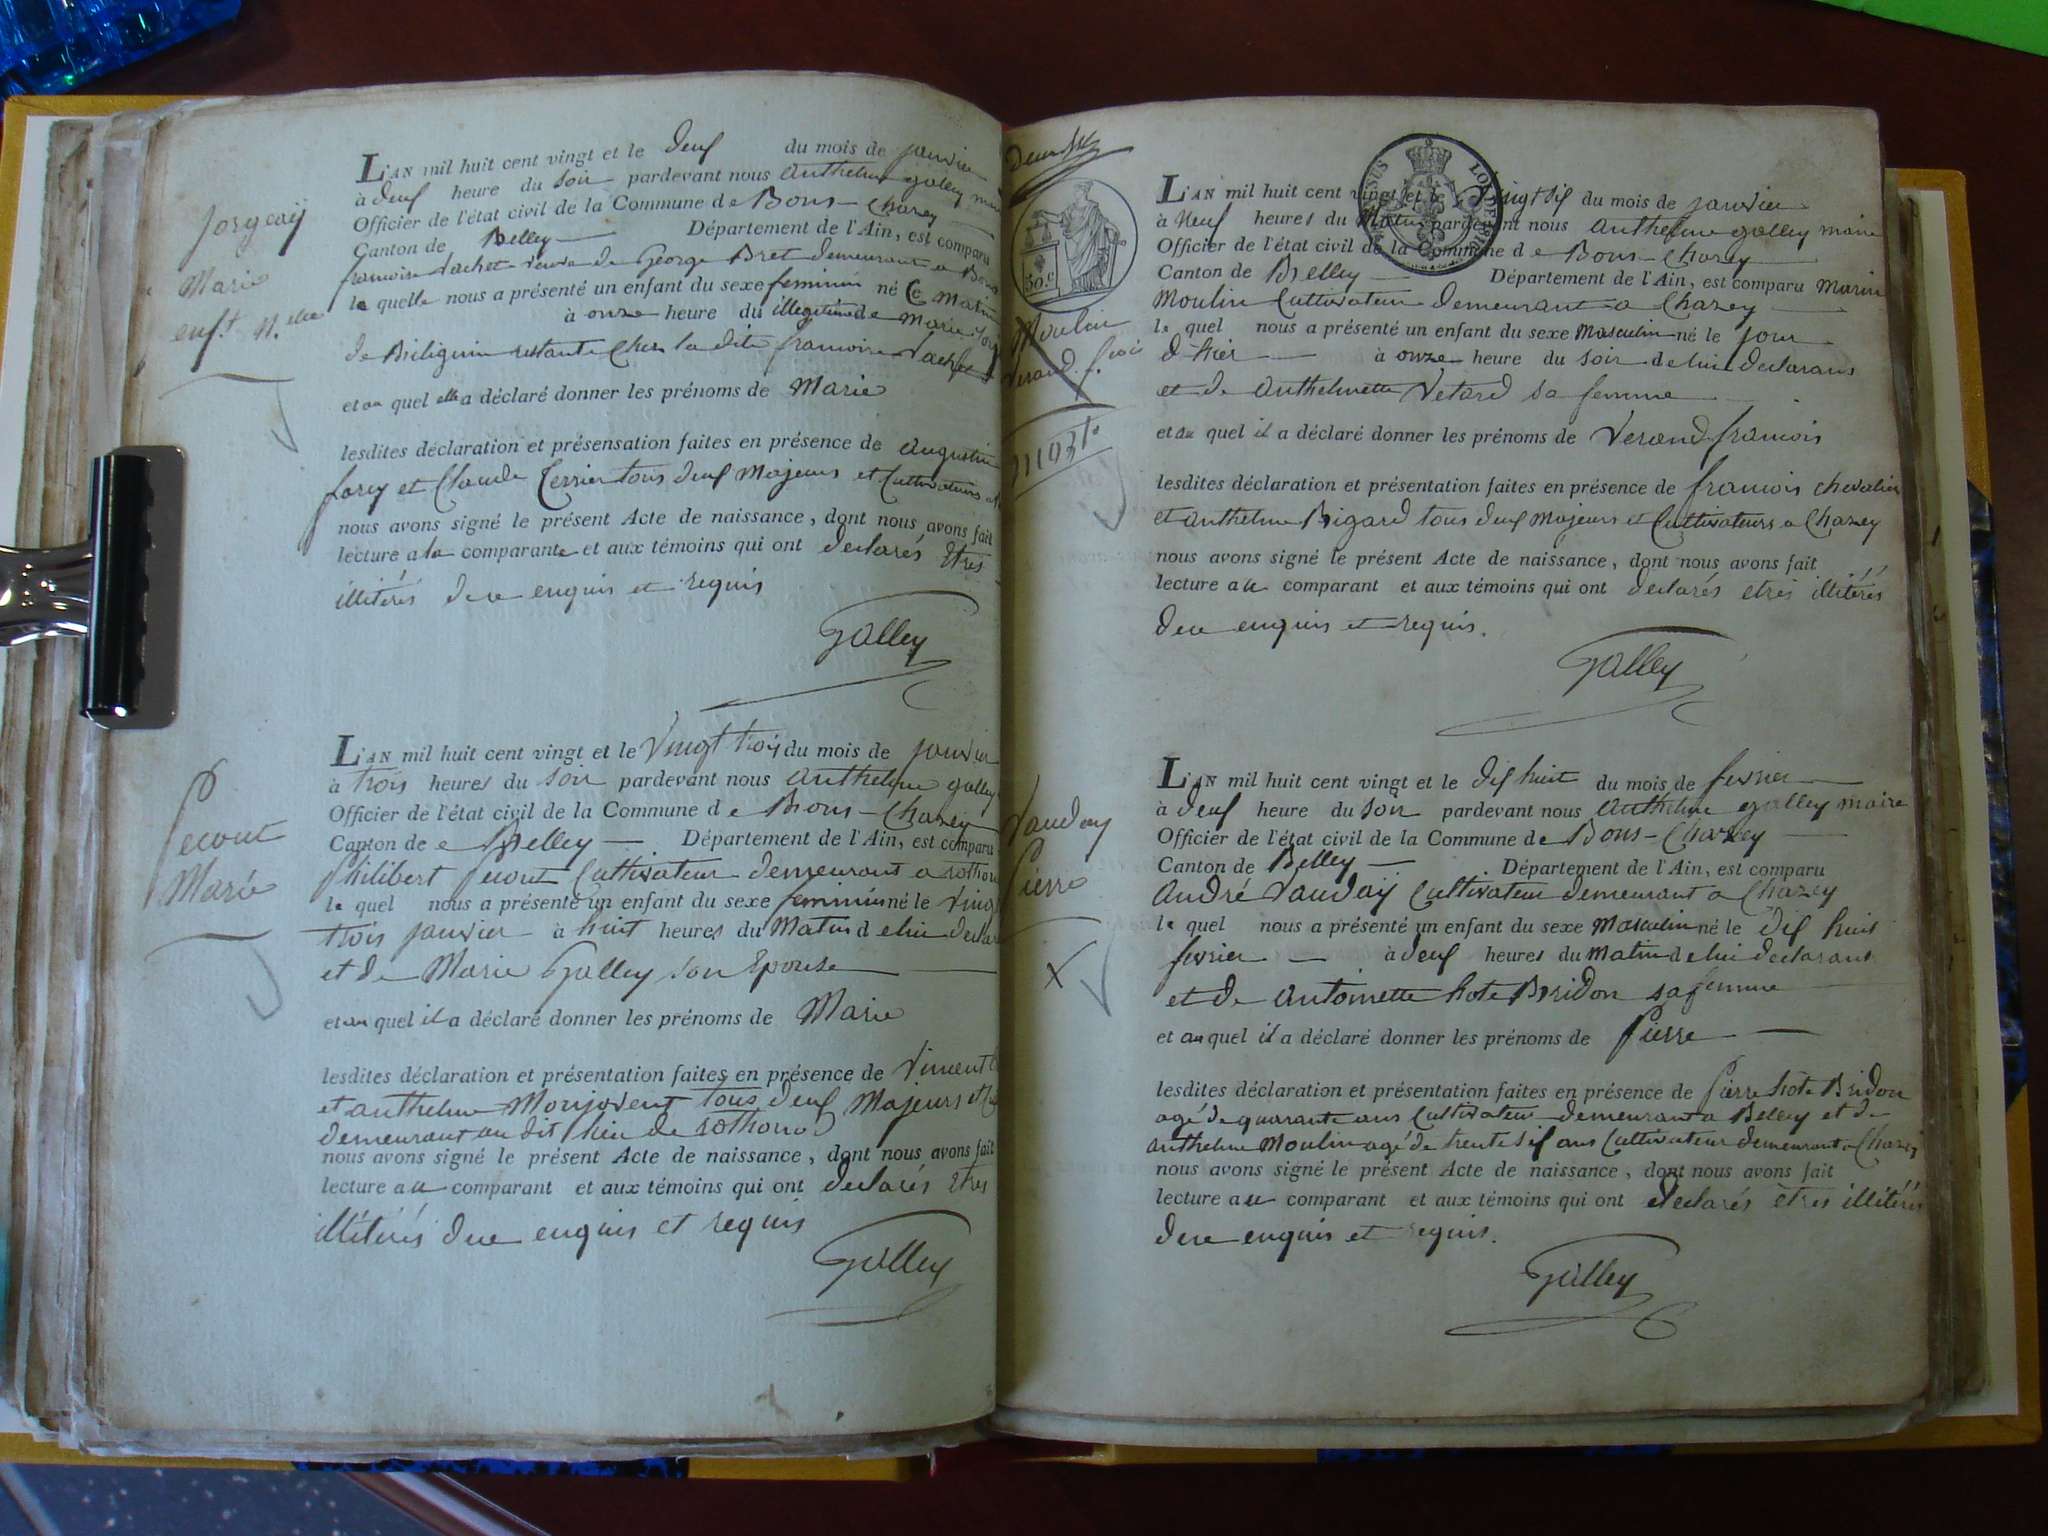 Marie
enf.t N.elle
L'AN mil huit cent vingt et le deuf du mois de janvier
à deuf heure du soir pardevant nous anthelme galley
Officier de l'état civil de la Commune de Bons-Chazey
Canton de Belley Département de l'Ain, est comparu
francoise Vachet veuve de George Bret demeurant a Bons
la quelle nous a présenté un enfant du sexe feminin né Ce Matin
à onze heure du illegitime de Marie
restante Ches la dite francoise Vachet
et au quel elle a déclaré donner les prénoms de Marie
lesdites déclaration et présensation faites en présence de augustin
forey et Claude terrier tous deuf Majeurs et Cultivateurs
nous avons signé le présent Acte de naissance, dont nous avons fait
lecture a la comparante et aux témoins qui ont declarés Etres
illitérés de ce enquis et requis
Galley
Pecout
Marie
L'AN mil huit cent vingt et le Vingt trois du mois de janvier
à trois heures du soir pardevant nous anthelme galley
Officier de l'état civil de la Commune de Bons-Chazey
Canton de Belley Département de l'Ain, est comparu
Philibert Pecout Cultivateur demeurant a rothonod
le quel nous a présenté un enfant du sexe feminin né le Vingt
trois janvier à huit heures du Matin de lui declarant
et de Marie Galley son Epouse
et au quel il a déclaré donner les prénoms de Marie
lesdites déclaration et présentation faites en présence de Vincent
et anthelme Monjovent tous deuf Majeurs et
demeurant au dit lieu de rothonod
nous avons signé le présent Acte de naissance, dont nous avons fait
lecture au comparant et aux témoins qui ont declarés Etres
illitérés de ce enquis et requis
Galley
50.C
Moulin
Verand f.cois
L'AN mil huit cent vingt et le Vingt sif du mois de janvier
à Neuf heures du Matin pardevant nous anthelme galley maire
Officier de l'état civil de la Commune de Bons-Chazey
Canton de Belley Département de l'Ain, est comparu Marin
Moulin Cultivateur demeurant a Chazey
le quel nous a présenté un enfant du sexe Masculin né le jour
d'hier à onze heure du soir de lui declarans
et de anthelmette Vetard sa femme
et au quel il a déclaré donner les prénoms de Verand francois
lesdites déclaration et présentation faites en présence de francois chevalier
et anthelme Bigard tous deuf Majeurs et Cultivateurs a Chazey
nous avons signé le présent Acte de naissance, dont nous avons fait
lecture au comparant et aux témoins qui ont declarés etres illitérés
de ce enquis et requis.
Galley
Vauday
Pierre
L'AN mil huit cent vingt et le dif huit du mois de fevrier
à deuf heure du soir pardevant nous anthelme galley maire
Officier de l'état civil de la Commune de Bons-Chazey
Canton de Belley Département de l'Ain, est comparu
André Vauday Cultivateur demeurant a Chazey
le quel nous a présenté un enfant du sexe Masculin né le dif huit
fevrier à deuf heures du Matin de lui declarant
et de antoinette hote Bridon sa femme
et au quel il a déclaré donner les prénoms de Pierre
lesdites déclaration et présentation faites en présence de Pierre hote Bridon
agé de quarante ans Cultivateur demeurant a Belley et de
anthelme Moulin agé de trente sif ans Cultivateur demeurant a Chazey
nous avons signé le présent Acte de naissance, dont nous avons fait
lecture au comparant et aux témoins qui ont declarés êtres illitérés
de ce enquis et requis.
Galley